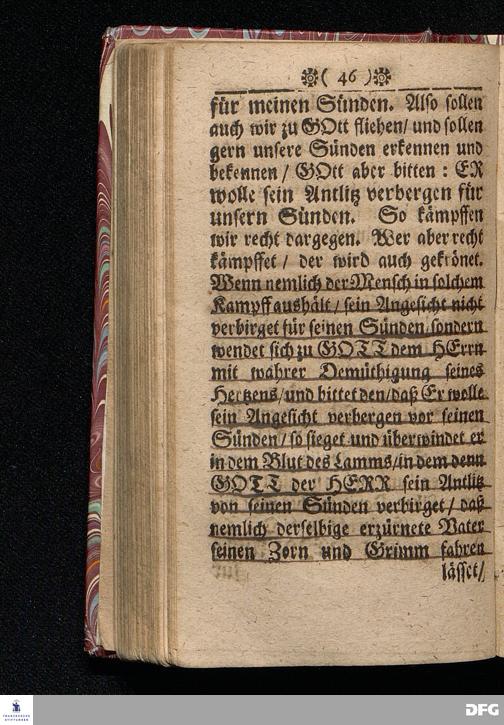 ( 46 )
für meinen Sünden. Also sollen
auch wir zu GOtt fliehen/ und sollen
gern unsere Sünden erkennen und
bekennen / GOtt aber bitten : ER
wolle sein Antlitz verbergen für
unsern Sünden. So kämpffen
wir recht dargegen. Wer aber recht
kämpffet / der wird auch gekrönet.
Wenn nemlich der Mensch in solchem
Kampff aushält / sein Angesicht nicht
verbirget für seinen Sünden/sondern
wendet sich zu GOTT dem HErrn
mit wahrer Demüthigung seines
Hertzens/und bittet den/daß Er wolle
sein Angesicht verbergen vor seinen
Sünden/ so sieget und überwindet er
in dem Blut des Lamms/in dem denn
GOTT der HERR sein Antlitz
von seinen Sünden verbirget / daß
nemlich derselbige erzürnete Vater
seinen Zorn und Grimm fahren
lässet/
FRANCKESCHE STIFTUNGEN
DFG